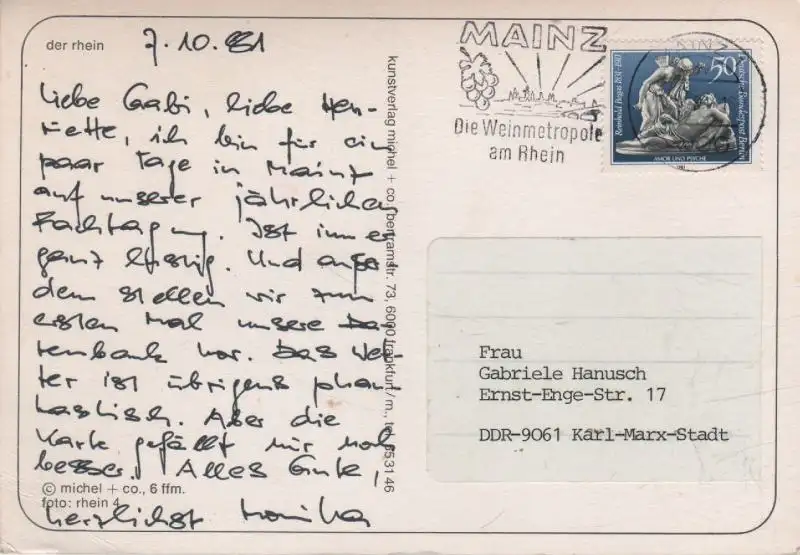 der rhein
7.10.81
Liebe Gabi, liebe Hen-
riette, ich bin für ein
paar Tage in Mainz
auf unserer jährlichen
Fachtagung. Ist immer
ganz lustig. Und außer
dem stellen wir zum
ersten Mal unsere Da-
tenbank vor. Das Wet-
ter ist übrigens phan-
tastisch. Aber die
Karte gefällt mir noch
besser. Alles Gute,
herzlichst Monika
© michel + co., 6 ffm.
foto: rhein 4
kunstverlag michel + co., bertramstr. 73, 6000 frankfurt/m., tel. 553146
MAINZ
Die Weinmetropole
am Rhein
MAINZ
50
Deutsche Bundespost Berlin
Reinhold Begas 1831-1911
AMOR UND PSYCHE
1981
Frau
Gabriele Hanusch
Ernst-Enge-Str. 17
DDR-9061 Karl-Marx-Stadt